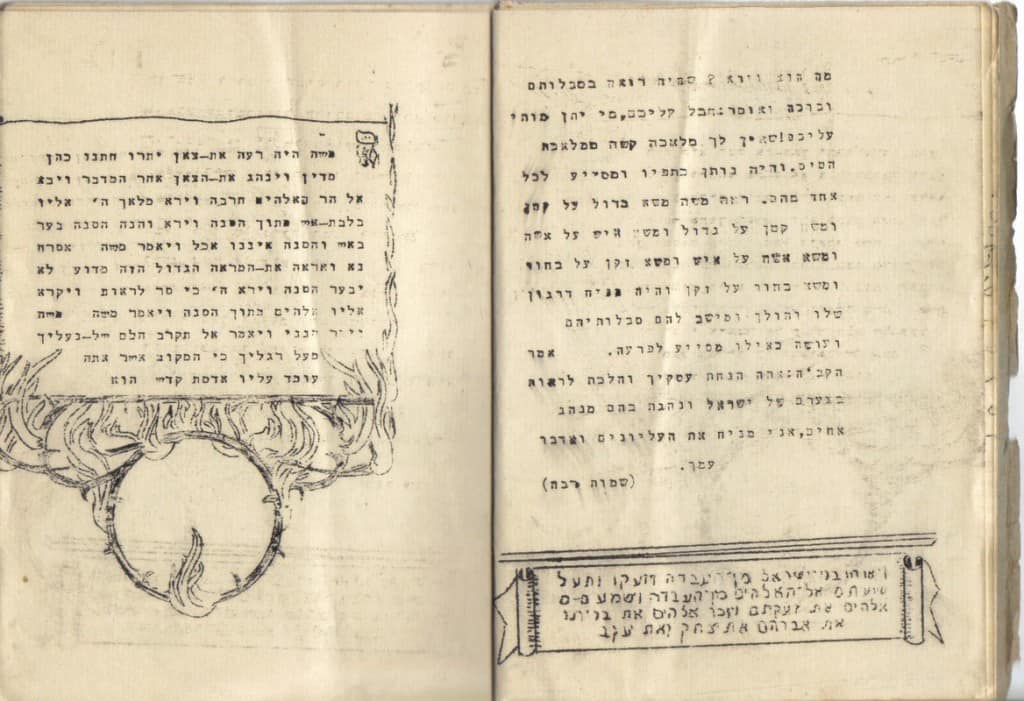 מה הוא וירא ? שהיה רואה בסבלותם
ובוכה ואומר:חבל עליכם,מי יתן מותי
עליכם!שאין לך מלאכה קשה ממלאכת
הטיט.והיה נותן כתפיו ומסייע לכל
אחד מהם. ראה משה משא גדול על קטן
ומשא קטן על גדול ומשא איש על אשה
ומשא אשה על איש ומשא זקן על בחור
ומשא בחור על זקן והיה מניח דרגון
שלו והולך ומישב להם סבלותיהם
ועושה כאילו מסייע לפרעה. אמר
הקב"ה:אתה הנחת עסקיך והלכת לראות
בצערם של ישראל ונהגת בהם מנהג
אחים,אני מניח את העליונים ואדבר
עמך.
(שמות רבה)
ויאנחו בני־ישראל מן־העבדה ויזעקו ותעל
שועתם אל־האלהים מן־העבדה וישמע
אלהים את זעקתם ויזכר אלהים את בריתו
את אברהם את יצחק ואת יעקב
משה היה רעה את-צאן יתרו חתנו כהן
מדין וינהג את-הצאן אחר המדבר ויבא
אל הר האלהים חרבה וירא מלאך ה' אליו
בלבת-אש מתוך הסנה וירא והנה הסנה בער
באש והסנה איננו אכל ויאמר משה אסרה
נא ואראה את-המראה הגדול הזה מדוע לא
יבער הסנה וירא ה' כי סר לראות ויקרא
אליו אלהים מתוך הסנה ויאמר משה משה
ויאמר הנני ויאמר אל תקרב הלם של-נעליך
מעל רגליך כי המקום אשר אתה
עומד עליו אדמת קדש הוא